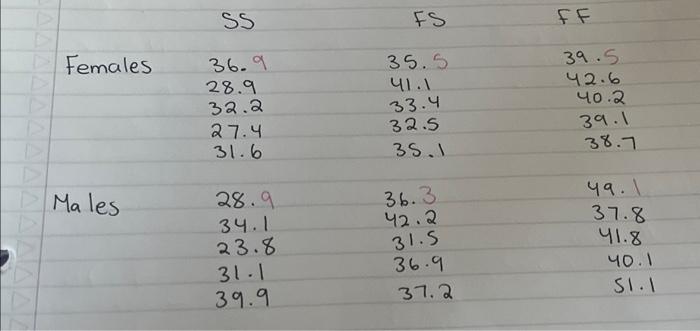 SS FS FF
Females 36.9 35.5 39.5
28.9 41.1 42.6
32.2 33.4 40.2
27.4 32.5 39.1
31.6 35.1 38.7
Males 28.9 36.3 49.1
34.1 42.2 37.8
23.8 31.5 41.8
31.1 36.9 40.1
39.9 37.2 51.1